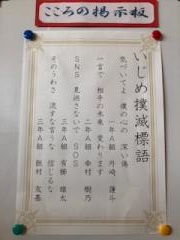 こころの掲示板
いじめ撲滅標語
気づいてよ 僕の心の 深い傷
一年A組 外崎 蓮斗
一言で 相手の未来 変わります
二年A組 幸村 樹乃
SNS 見過さないで SOS
三年A組 有槻 雄太
そのうわさ 流すな言うな 信じるな
三年A組 飯村 友基